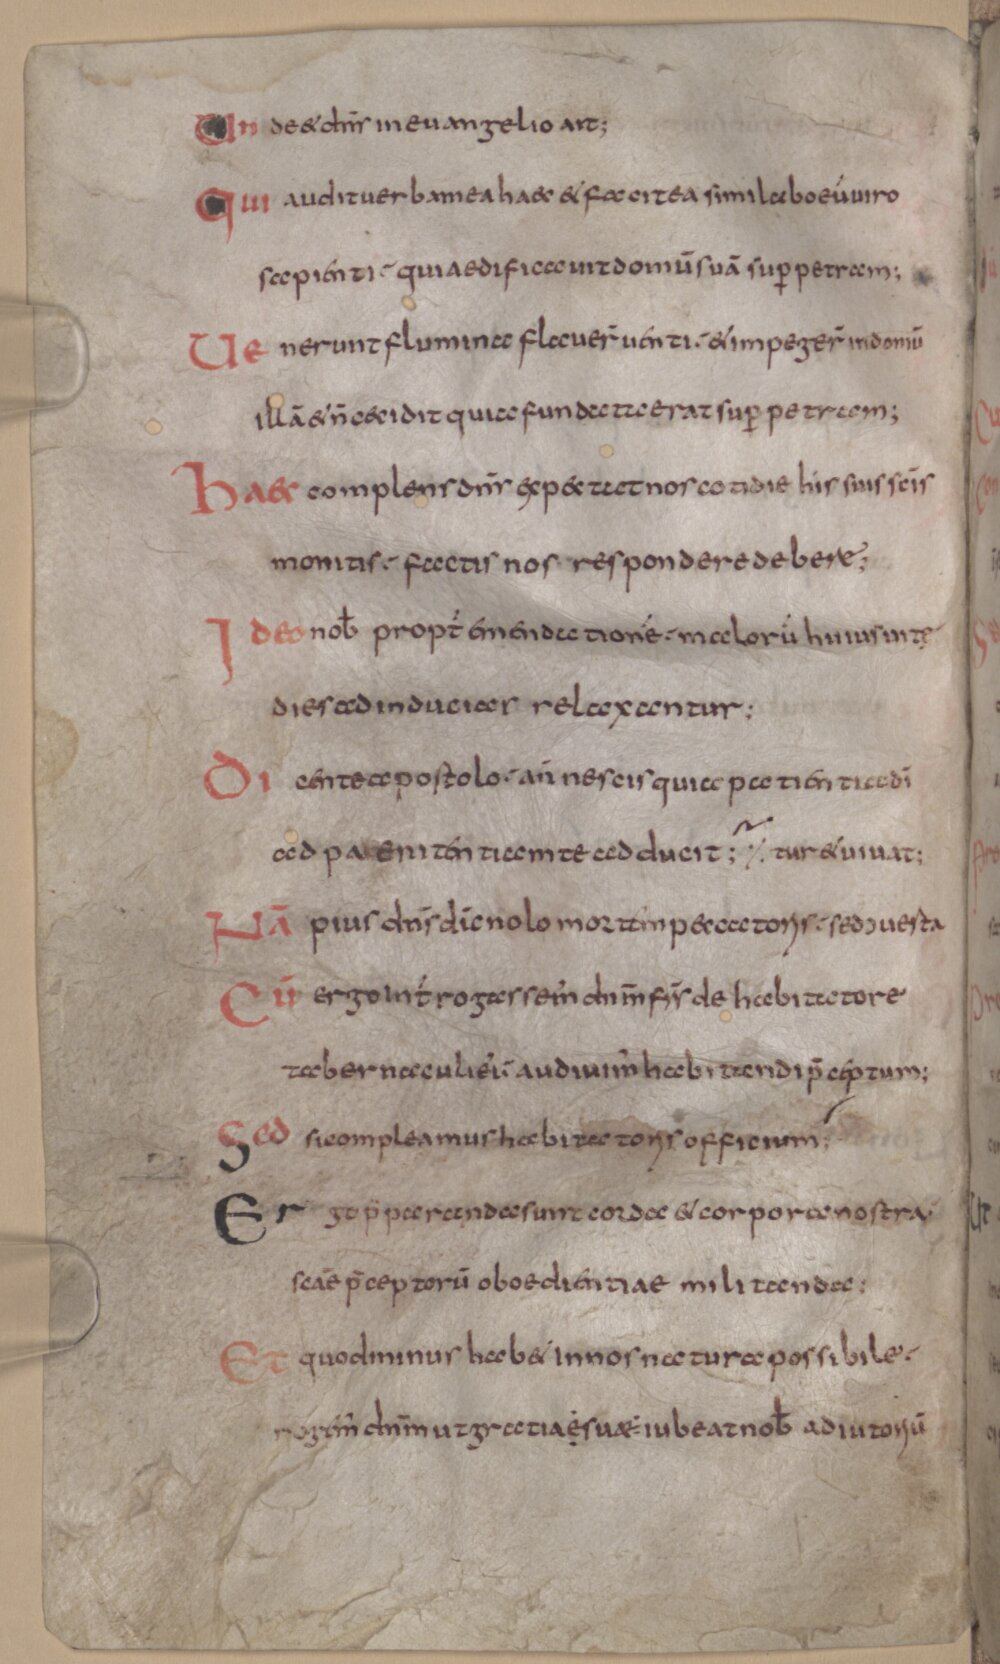 Un de & dn̄s in euangelio ait;
Qui audit uerba mea haec & facit ea similabo eū uiro
sapienti · quia edificauit domū suā sup̱ petram;
Ue nerunt flumina flauer̄ uenti · & impeger̄ in domū
illā & n̄ cecidit quia fundata erat sup̱ petram;
Haec complens dn̄s expectat nos cotidie his suis sc̄is
monitis · factis nos respondere debere;
Ideo nob̄ propt̄ emendationē · malorū huius uitę
dies ad inducias relaxantur;
Di cente apostolo · an̄ nescis quia patientia dī
ad paenitentiam te adducit; ⁒ tur & uiuat;
Nā pius dn̄s dīc nolo mortē peccatoris · sed ɔuerta
Cū ergo int̄rogassem̄ dn̄m frs̄ de habitatore
tabernaculi eī audiuim̄ habitandi p̄ceptum;
Sed si compleamus habitatoris officium;
Er go p̄paranda sunt corda & corpora nostra
scāe p̄ceptorū oboedientiae militanda;
Et quod minus hab& in nos natura possibile ·
rogem̄ dn̄m ut gratiae suae iubeat nob̄ adiutoriū